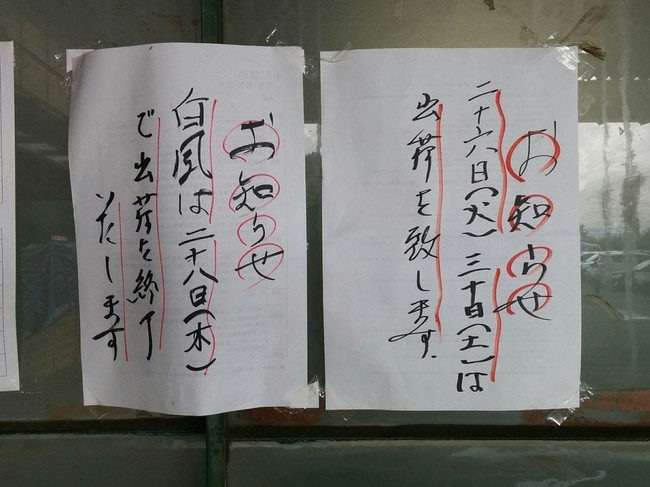 お知らせ
二十六日(火)三十日(土)は
出荷を致します.
お知らせ
白凰は二十八日(木)
で出荷を終了
いたします